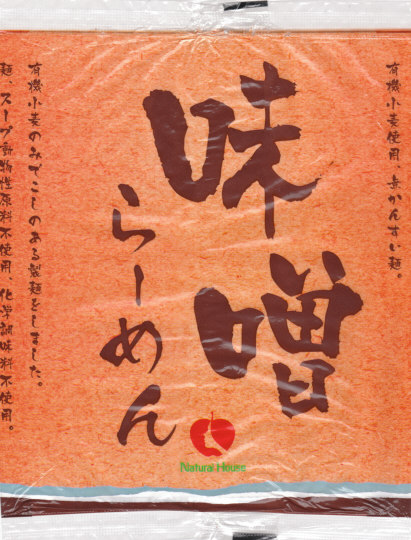 有機小麦使用、無かんすい麺。
味噌
らーめん
有機小麦のみでこしのある製麺をしました。
麺、スープ動物性原料不使用、化学調味料不使用。
Natural House